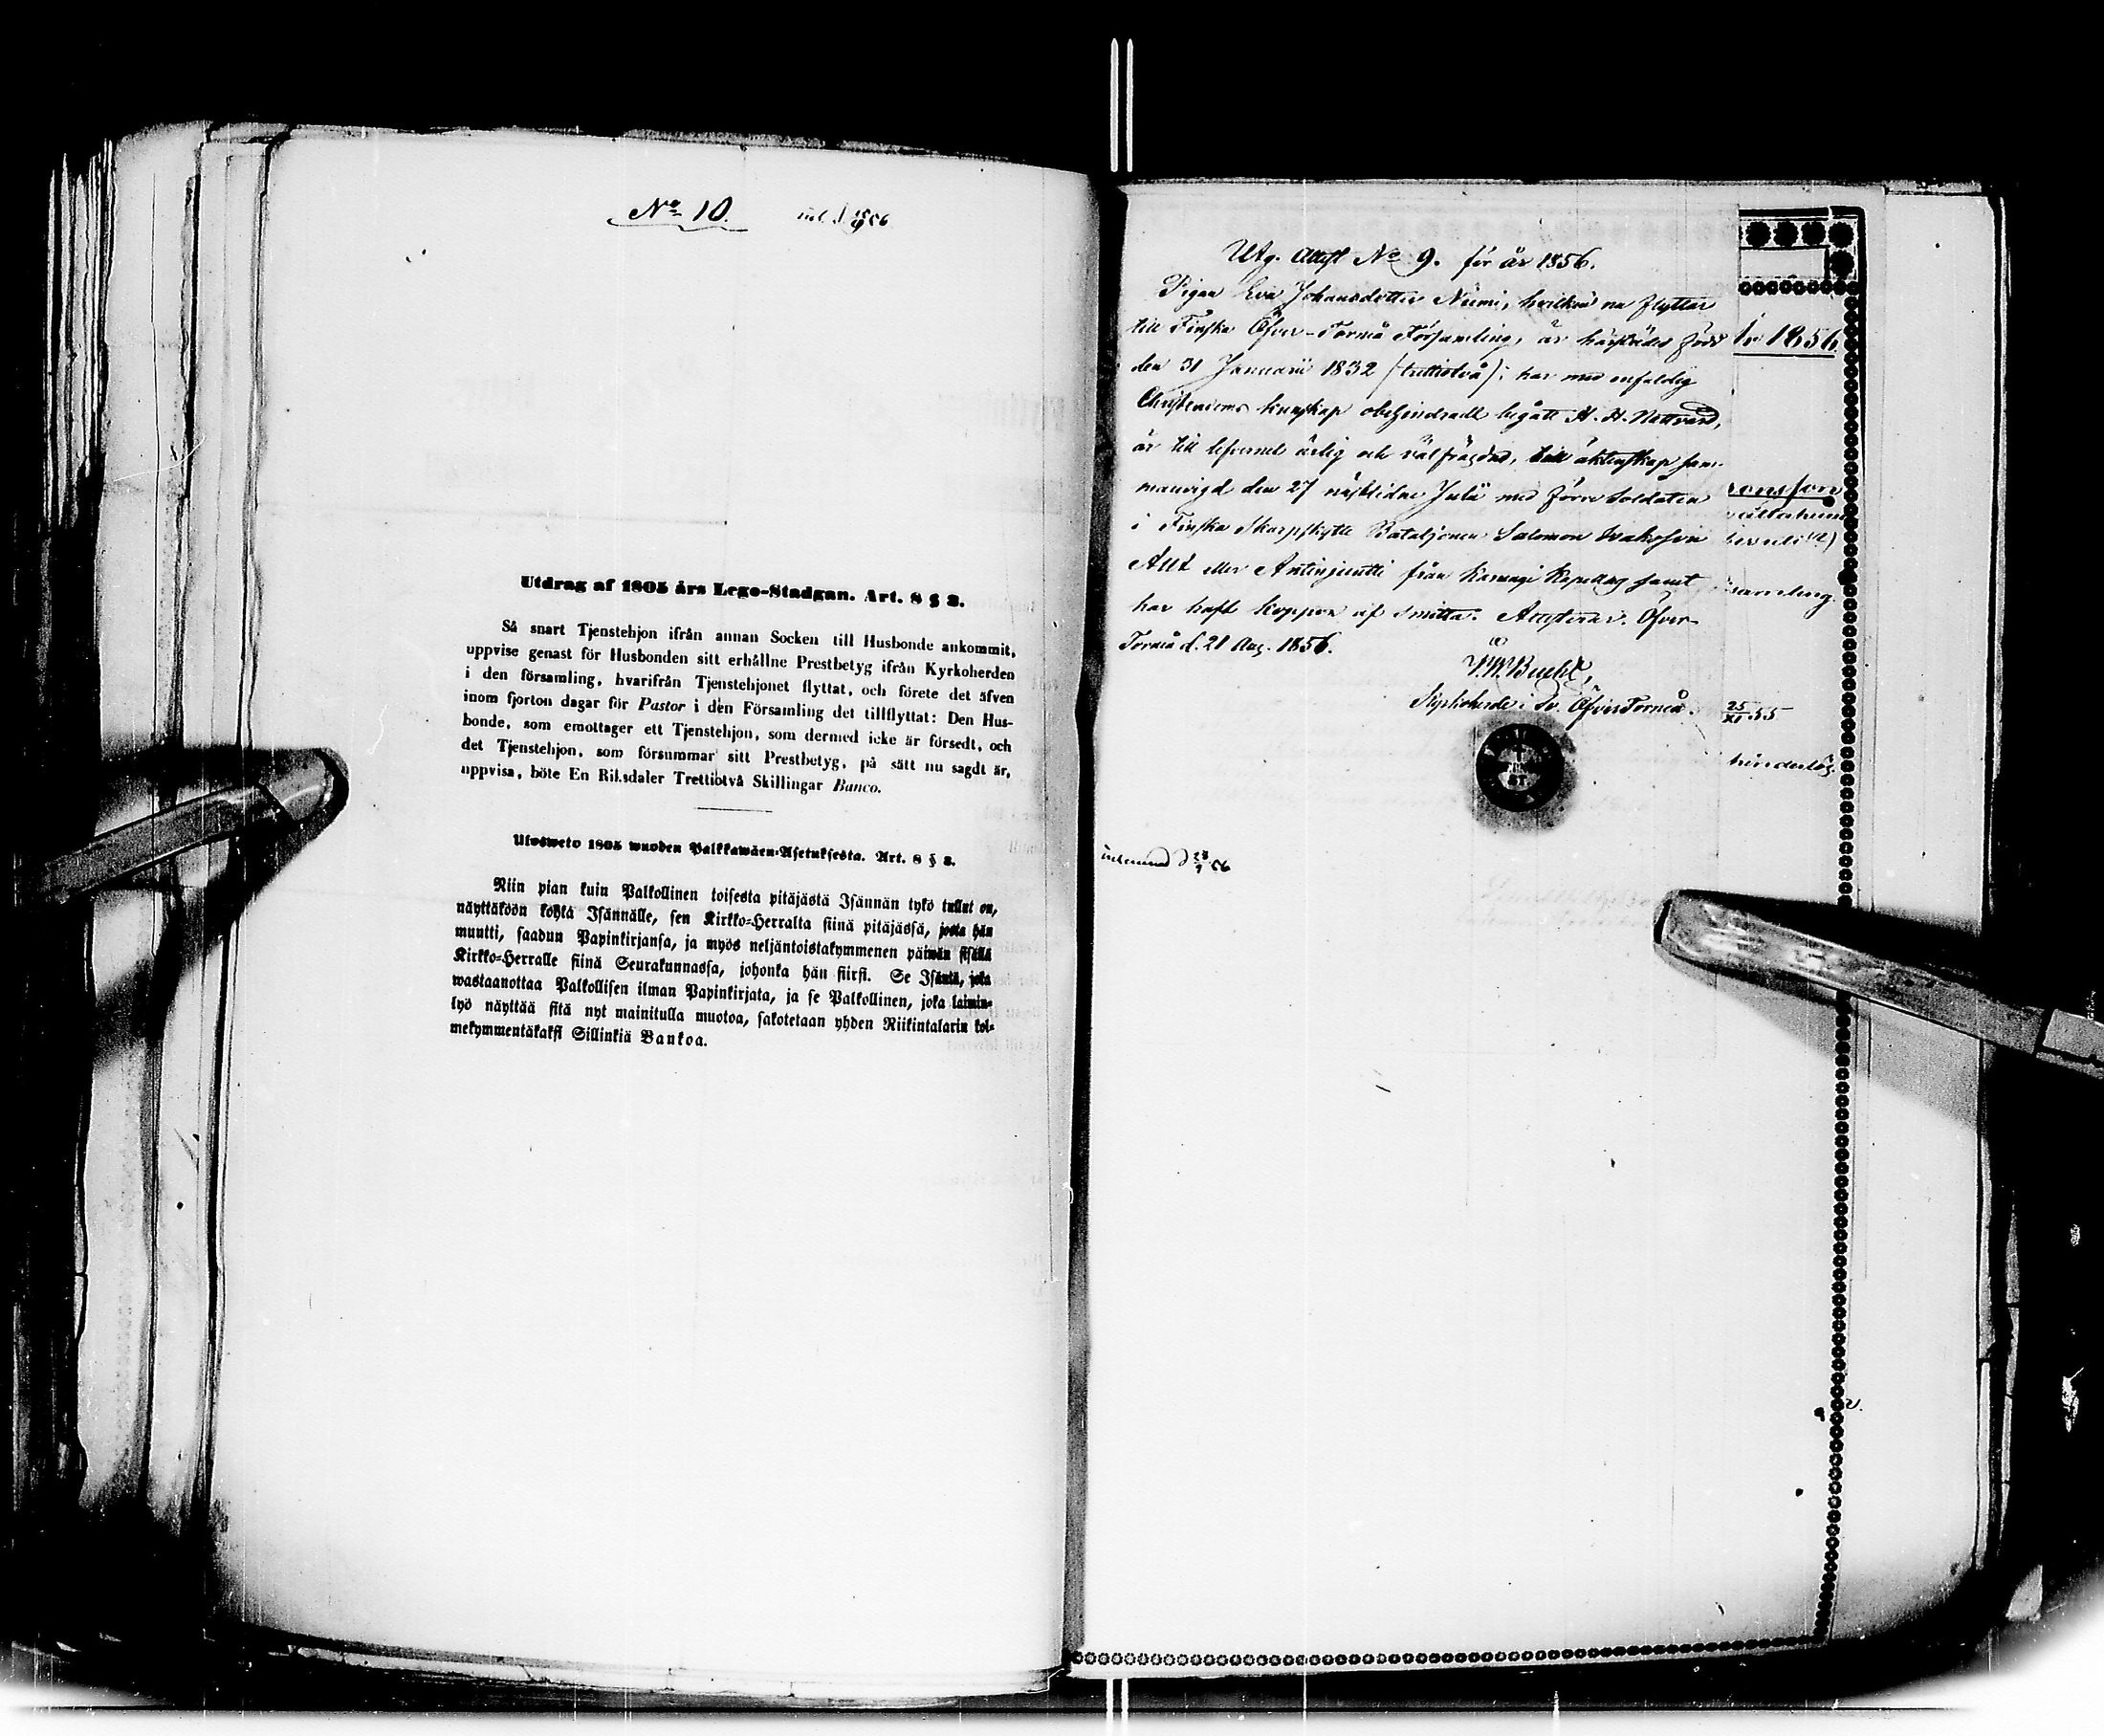 No 10.
Utdrag af 1805 års Lego-Stadgan. Art. 8 § 3.
Så snart Tjenstehjon ifrån annan Socken till Husbonde ankommit,
uppvise genast för Husbonden sitt erhållne Prestbetyg ifrån Kyrkoherden
i den församling, hvarifrån Tjenstehjonet flyttat, och förete det äfven
inom fjorton dagar för Pastor i den Församling det tillflyttat: Den Hus-
bonde, som emottager ett Tjenstehjon, som dermed icke är försedt, och
det Tjenstehjon, som försummar sitt Prestbetyg, på sätt nu sagdt är,
uppvisa, böte En Riksdaler Trettiotvå Skillingar Banco.
Ulosweto 1805 wuoden Palkkawäen-Asetuksesta. Art. 8 § 3.
Niin pian kuin Palkollinen toisesta pitäjästä Isännän tykö tullut on,
näyttäköön kohta Isännälle, sen Kirkko-Herralta siinä pitäjässä, josta hän
muutti, saadun Papinkirjansa, ja myös neljäntoistakymmenen päiwän sisällä
Kirkko-Herralle siinä Seurakunnassa, johonka hän siirsi. Se Isäntä, joka
wastaanottaa Palkollisen ilman Papinkirjata, ja se Palkollinen, joka laimin-
lyö näyttää sitä nyt mainitulla muotoa, sakotetaan yhden Riikintalarin kol-
mekymmentäkaksi Sillinkiä Bankoa.
Utg. Attest No 9. för år 1856.
Pigan Eva Johansdotter Niemi, hvilken nu flyttar
till Finska Öfver-Torneå Församling, är härstädes född
den 31 Januarii 1832 (trettiotvå); har med enfaldig
Christendoms kunskap obehindradt begått H. H. Nattvard,
är till lefvernet ärlig och välfrägdad, till äktenskap sam-
manvigd den 27 nästlidne Julii med förre Soldaten
i Finska Skarpskytte Bataljonen Salomon Isaksson
Alit eller Antinjuntti från Karungi Kapellag samt
har haft koppor af smitta. Attesterar. Öfver-
Torneå d. 21 Aug. 1856.
Kyrkoherde i Sv. ÖfverTorneå.
år 1856
onsson
samling.
25/XI 55
hinderlös